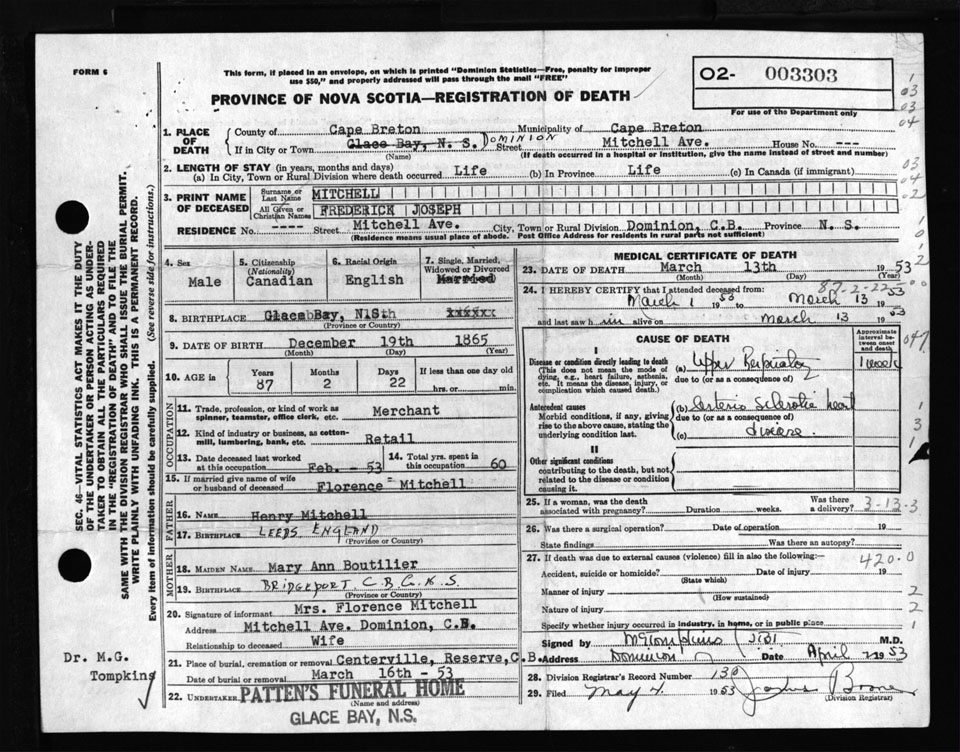 FORM 6
This form, if placed in an envelope, on which is printed "Dominion Statistics—Free, penalty for improper
use $50," and properly addressed will pass through the mail "FREE"
PROVINCE OF NOVA SCOTIA—REGISTRATION OF DEATH
O2- 003303
For use of the Department only
SEC. 46—VITAL STATISTICS ACT MAKES IT THE DUTY
OF THE UNDERTAKER OR PERSON ACTING AS UNDER-
TAKER TO OBTAIN ALL THE PARTICULARS REQUIRED
IN THE "REGISTRATION OF DEATH" AND TO FILE THE
SAME WITH THE DIVISION REGISTRAR WHO SHALL ISSUE THE BURIAL PERMIT.
WRITE PLAINLY WITH UNFADING INK. THIS IS A PERMANENT RECORD.
Every item of information should be carefully supplied. (See reverse side for instructions.)
1. PLACE OF DEATH
County of Cape Breton Municipality of Cape Breton
If in City or Town Glace Bay, N. S. DOMINION Street Mitchell Ave. House No. ---
(Name) (If death occurred in a hospital or institution, give the name instead of street and number)
2. LENGTH OF STAY (in years, months and days)
(a) In City, Town or Rural Division where death occurred Life (b) In Province Life (c) In Canada (if immigrant)
3. PRINT NAME OF DECEASED
Surname or Last Name MITCHELL
All Given or Christian Names FREDERICK JOSEPH
RESIDENCE No. ---- Street Mitchell Ave. City, Town or Rural Division Dominion, C.B. Province N. S.
(Residence means usual place of abode. Post Office Address for residents in rural parts not sufficient)
4. Sex
Male
5. Citizenship
(Nationality)
Canadian
6. Racial Origin
English
7. Single, Married,
Widowed or Divorced
Married
8. BIRTHPLACE Glace Bay, N S
(Province or Country)
9. DATE OF BIRTH December 19th 1865
(Month) (Day) (Year)
10. AGE in
Years Months Days If less than one day
87 2 22 hrs. or min.
OCCUPATION
11. Trade, profession, or kind of work as
spinner, teamster, office clerk, etc. Merchant
12. Kind of industry or business, as cotton-
mill, lumbering, bank, etc. Retail
13. Date deceased last worked
at this occupation Feb. - 53
14. Total yrs. spent in
this occupation 60
15. If married give name of wife
or husband of deceased Florence Mitchell
FATHER
16. NAME Henry Mitchell
17. BIRTHPLACE LEEDS ENGLAND
(Province or Country)
MOTHER
18. MAIDEN NAME Mary Ann Boutilier
19. BIRTHPLACE BRIDGEPORT C.B.Co. N.S.
(Province or Country)
20. Signature of informant Mrs. Florence Mitchell
Address Mitchell Ave. Dominion, C.B.
Relationship to deceased Wife
21. Place of burial, cremation or removal Centerville, Reserve, C.B.
Date of burial or removal March 16th - 53
22. UNDERTAKER PATTEN'S FUNERAL HOME
(Name and address)
GLACE BAY, N.S.
Dr. M.G.
Tompkins
MEDICAL CERTIFICATE OF DEATH
23. DATE OF DEATH March 13th 1953
(Month) (Day) (Year)
87-2-22
24. I HEREBY CERTIFY that I attended deceased from:
March 1 1953 to March 13 1953
and last saw him alive on March 13 1953
CAUSE OF DEATH
Approximate
interval be-
tween onset
and death
I
Disease or condition directly leading to death
(This does not mean the mode of
dying, e.g., heart failure, asthenia,
etc. It means the disease, injury, or
complication which caused death.)
(a) Upper Respiratory 1 week
due to (or as a consequence of)
Antecedent causes
Morbid conditions, if any, giving
rise to the above cause, stating the
underlying condition last.
(b) Arterio Sclerotic heart
due to (or as a consequence of)
(c) disease.
II
Other significant conditions
contributing to the death, but not
related to the disease or condition
causing it.
25. If a woman, was the death
associated with pregnancy? Duration weeks. Was there
a delivery? 3-13-3
26. Was there a surgical operation? Date of operation 19
State findings Was there an autopsy?
27. If death was due to external causes (violence) fill in also the following:
420.0
Accident, suicide or homicide? Date of injury 19
(State which)
Manner of injury
(How sustained)
Nature of injury
Specify whether injury occurred in industry, in home, or in public place
Signed by MGTompkins M.D.
Address Dominion Date April 7 1953
28. Division Registrar's Record Number 130
29. Filed May 4. 1953 Boone
(Division Registrar)